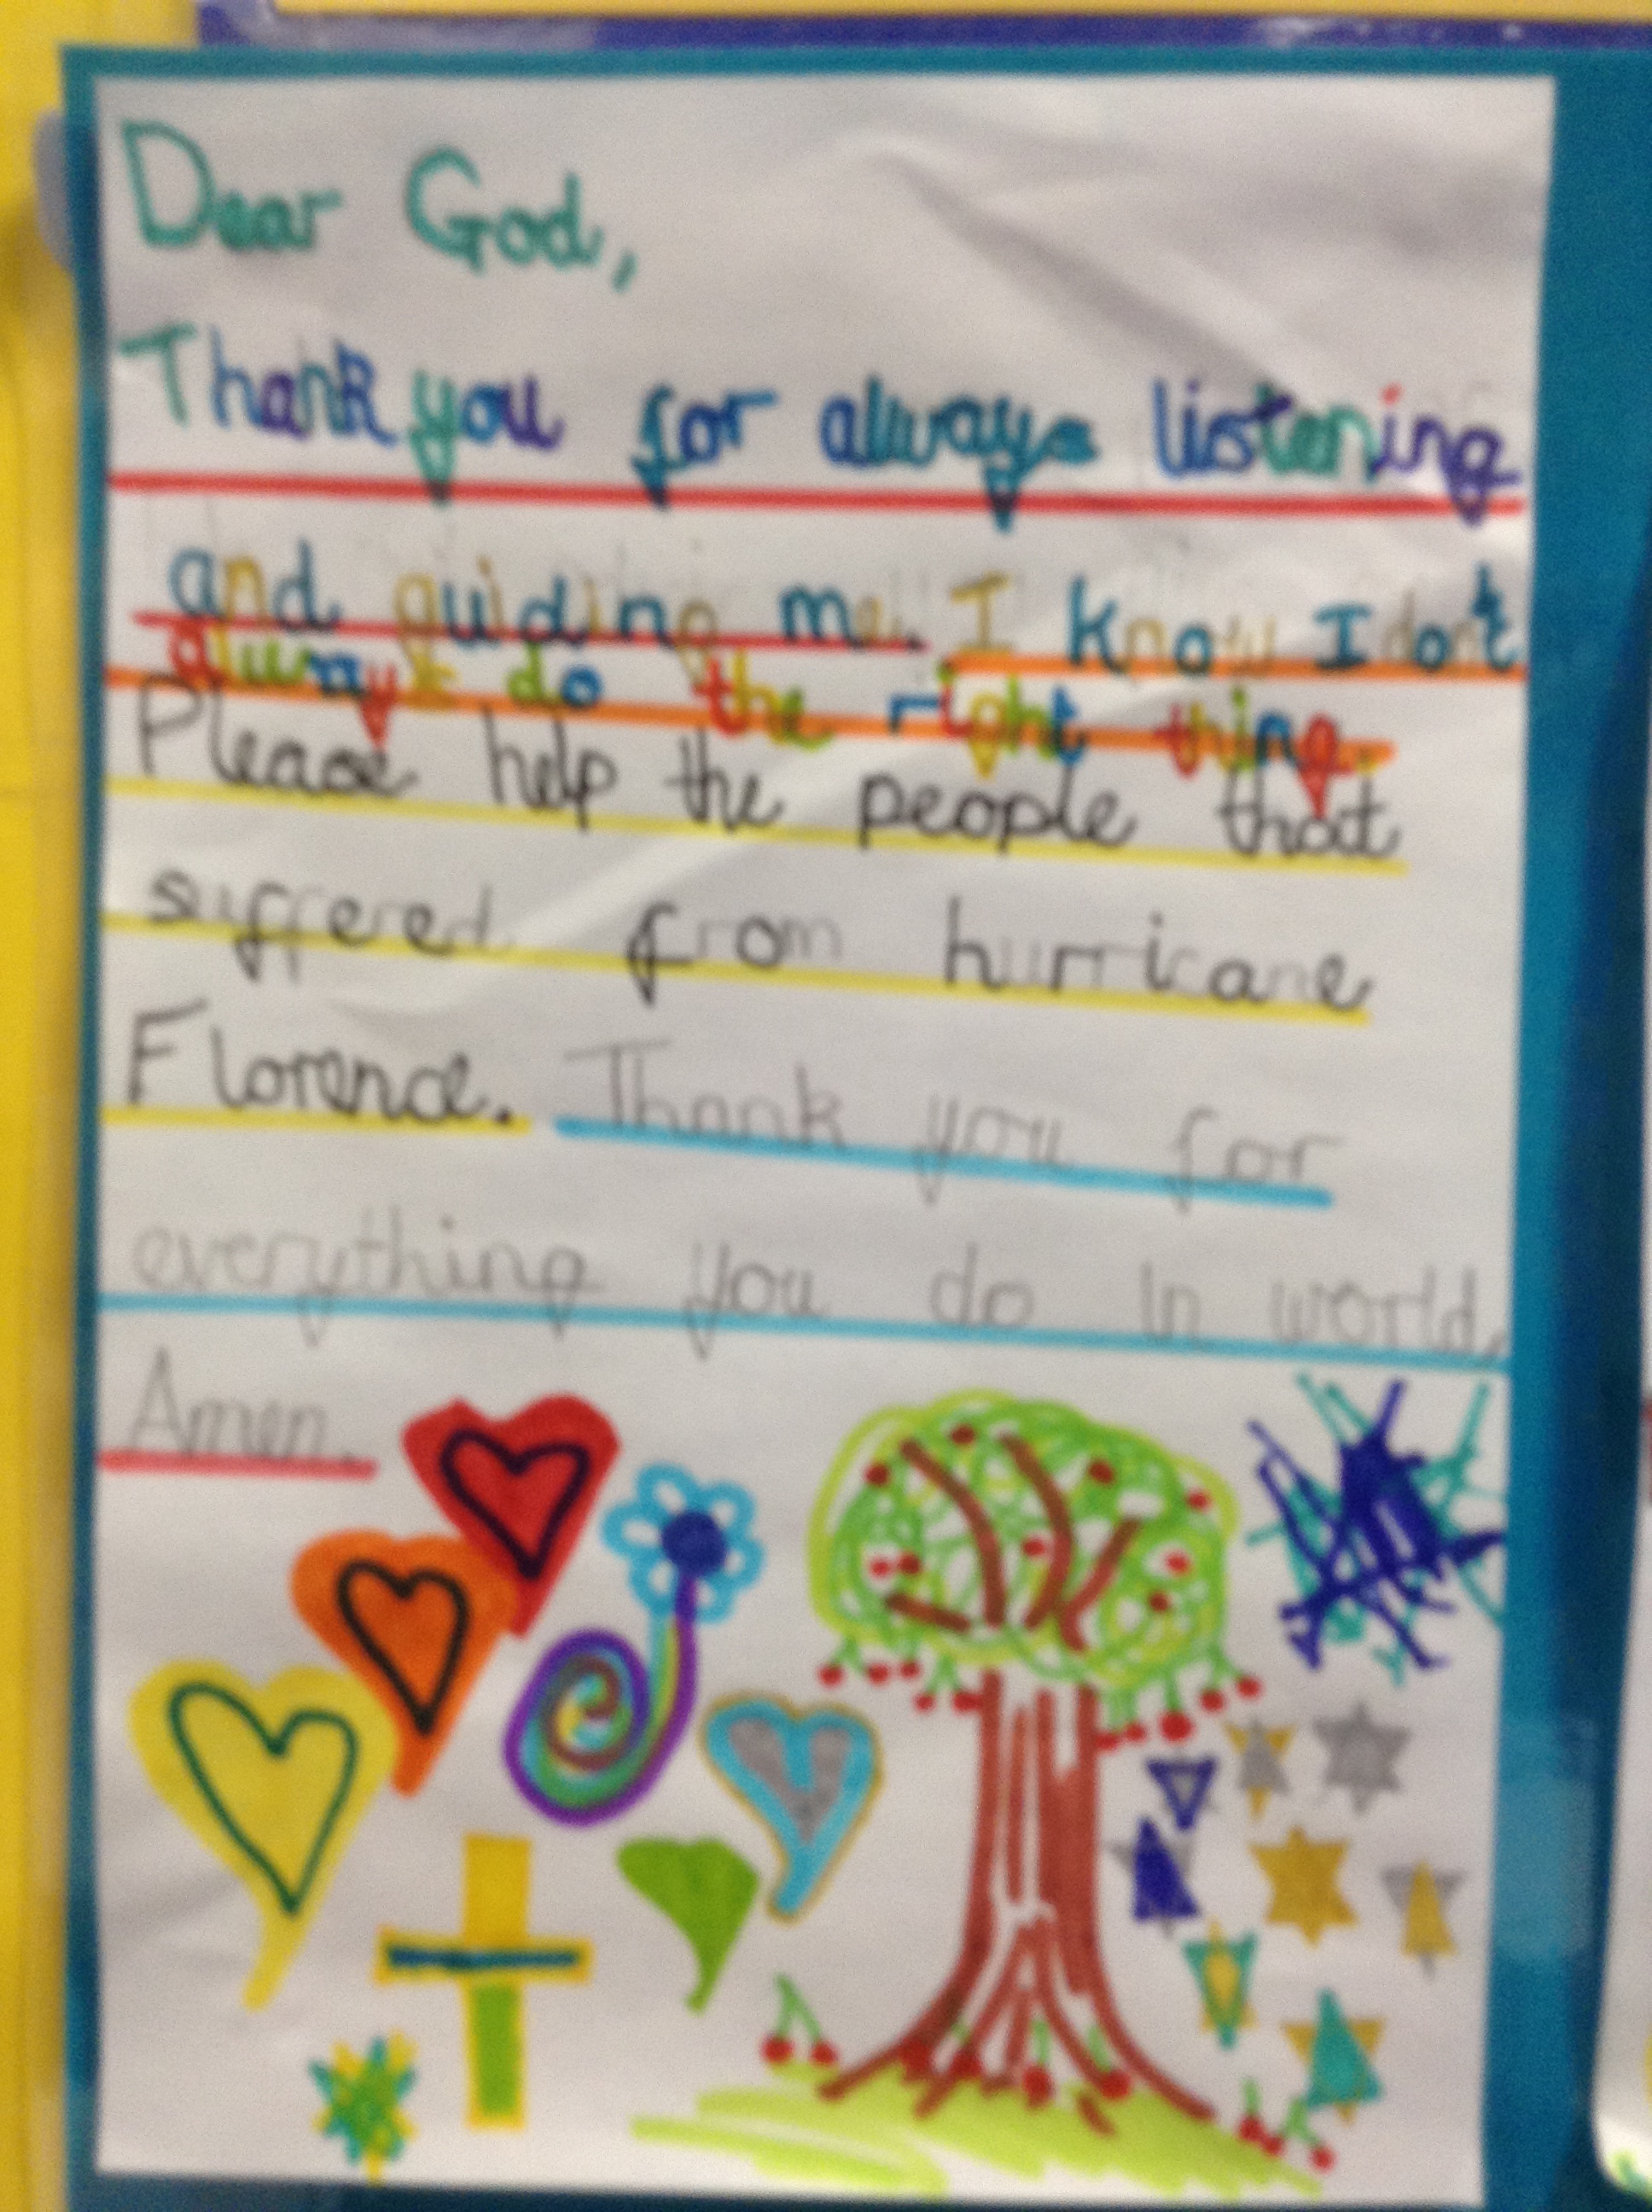 Dear God,
Thank you for always listening
and guiding me. I know I dont
always do the right thing.
Please help the people that
suffered from hurricane
Florence. Thank you for
everything you do in world.
Amen.